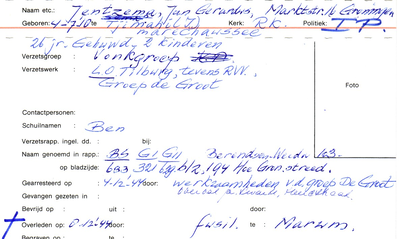 Naam etc.: Jentzema, Jan Gerardus, Marktstr. Groningen
Geboren: 4-7-10 te Kerk: R.K. Politiek:
marechaussee
26 jr. Gehuwd, 2 kinderen
Verzetsgroep : Vonkgroep
Verzetswerk : L.O. Tilburg, tevens RVV.
Groep de Groot
Foto
Contactpersonen:
Schuilnaam : Ben
Verzetsrapp. ingel. dd. : bij:
Naam genoemd in rapp.: BS GI GII
op bladzijde: 633 321
Gearresteerd op : 4-12-44 door: werkzaamheden v.d. groep De Groot
Gevangen gezeten in :
Bevrijd op : uit : door:
Overleden op : 8-12-44 door: fusil. te: Marum.
Begraven op : te